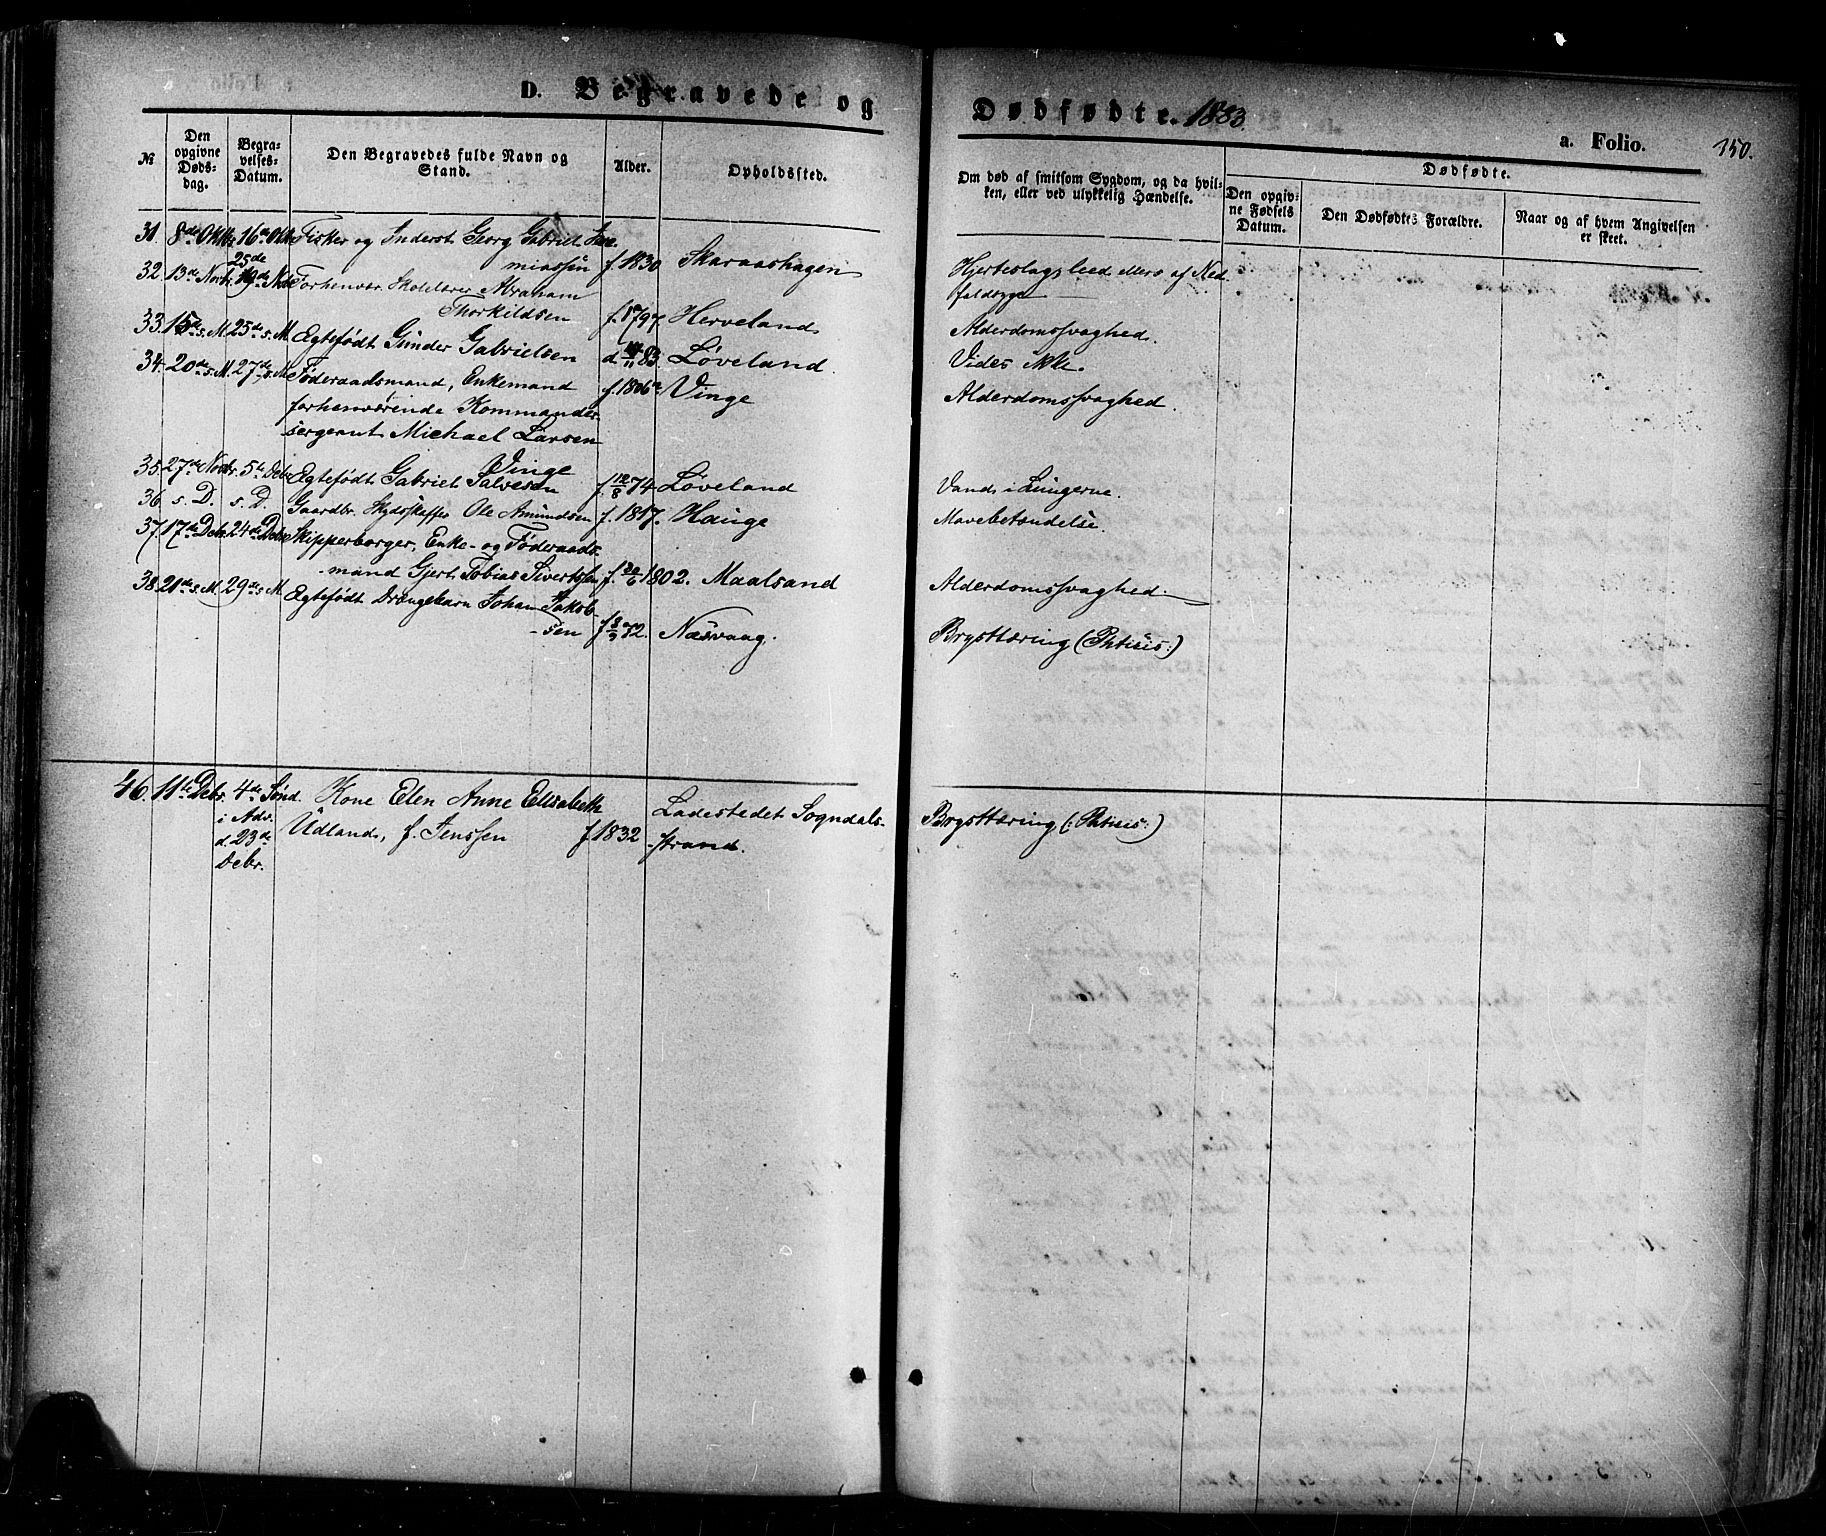 D. Begravede og
Dødfødte. 1883.
a. Folio. 150.
№
Den opgivne Døds-dag.
Begra-velses-Datum.
Den Begravedes fulde Navn og Stand.
Alder.
Opholdssted.
Om død af smitsom Sygdom, og da hvil-
ken, eller ved ulykkelig Hændelse.
Dødfødte.
Den opgiv-ne Fødsels Datum.
Den Dødfødtes Forældre.
Naar og af hvem Angivelsen er skeet.
31. 8de Oktbr 16de Oktb Fisker og Inderst Georg Gabriel Jere-
miassen f. 1830 Skaraashagen Hjerteslag, leed ellers af Ned
faldsyge
25de
32 13de Novbr. 19de Nov Forhenvær. Skolelærer Abraham
Thorkildsen f. 1797. Herveland Alderdomssvaghed.
33. 15de s. M. 25de s. M. Ægtefødt Gunder Gabrielsen d. 11 83. Løveland Vides ikke.
34. 20de s. M. 27de s. M. Føderaadsmand, Enkemand f. 1806 Vinge Alderdomssvaghed.
forhenværende Kommander-
sergeant Michael Larsen
Vinge
35. 27de Novbr. 5te Debr Ægtefødt Gabriel Salvesen f. 12/8 74. Løveland Vand i Lungerne.
36 s. D. s. D. Gaardbr. Skydsskaffer Ole Amundsen f. 1817. Hauge Mavebetændelse.
37. 17de Debr. 24de Debr Skipperborger, Enke- og Føderaads-
mand Gjert Tobias Sivertsen f. 30/6 1802. Maalsand Alderdomssvaghed.
38. 21de s. M. 29de s. M. Ægtefødt Drengebarn Johan Jakob-
sen f. 8/3 72. Nesvaag. Brysttæring (Phtisis:)
46. 11te Debr. 4de Sønd. Kone Elen Anne Elisabeth
i Adv. Udland, f. Jenssen f 1832 Ladestedet Sogndals- Brysttæring (: Phtisis:)
d. 23de strand.
Debr.